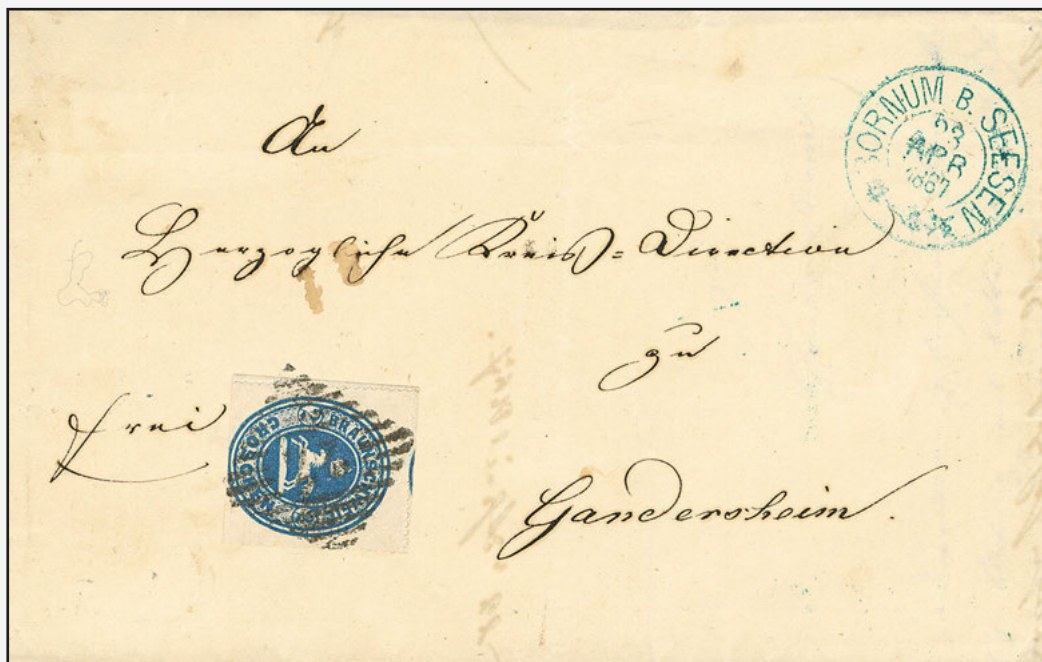 BORNUM B. SEESEN
23
APR
1867
An
Herzogliche Kreis=Direction
zu
frei
BRAUNSCHWEIG
GROSCHEN
2
Gandersheim.